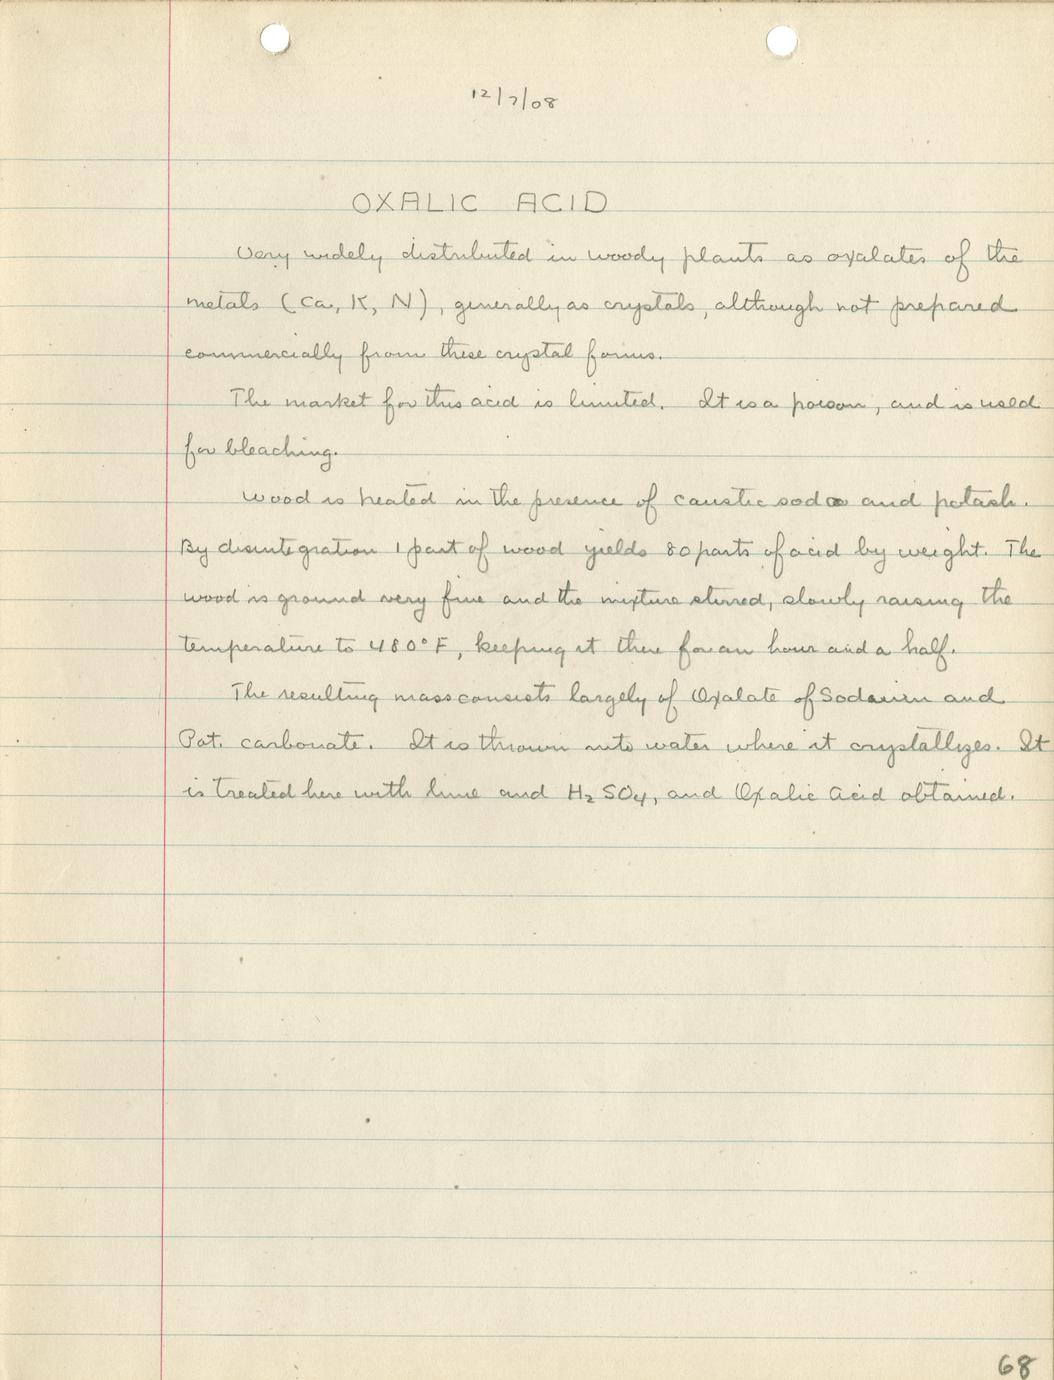 12/7/08
OXALIC ACID
Very widely distributed in woody plants as oxalates of the
metals (Ca, K, N), generally as crystals, although not prepared
commercially from these crystal forms.
The market for this acid is limited. It is a poison, and is used
for bleaching.
Wood is heated in the presence of caustic soda and potash.
By disintegration 1 part of wood yields 80 parts of acid by weight. The
wood is ground very fine and the mixture stirred, slowly raising the
temperature to 480°F, keeping it there for an hour and a half.
The resulting mass consists largely of Oxalate of Sodium and
Pot. carbonate. It is thrown into water where it crystallizes. It
is treated here with lime and H₂SO₄, and Oxalic Acid obtained.
68